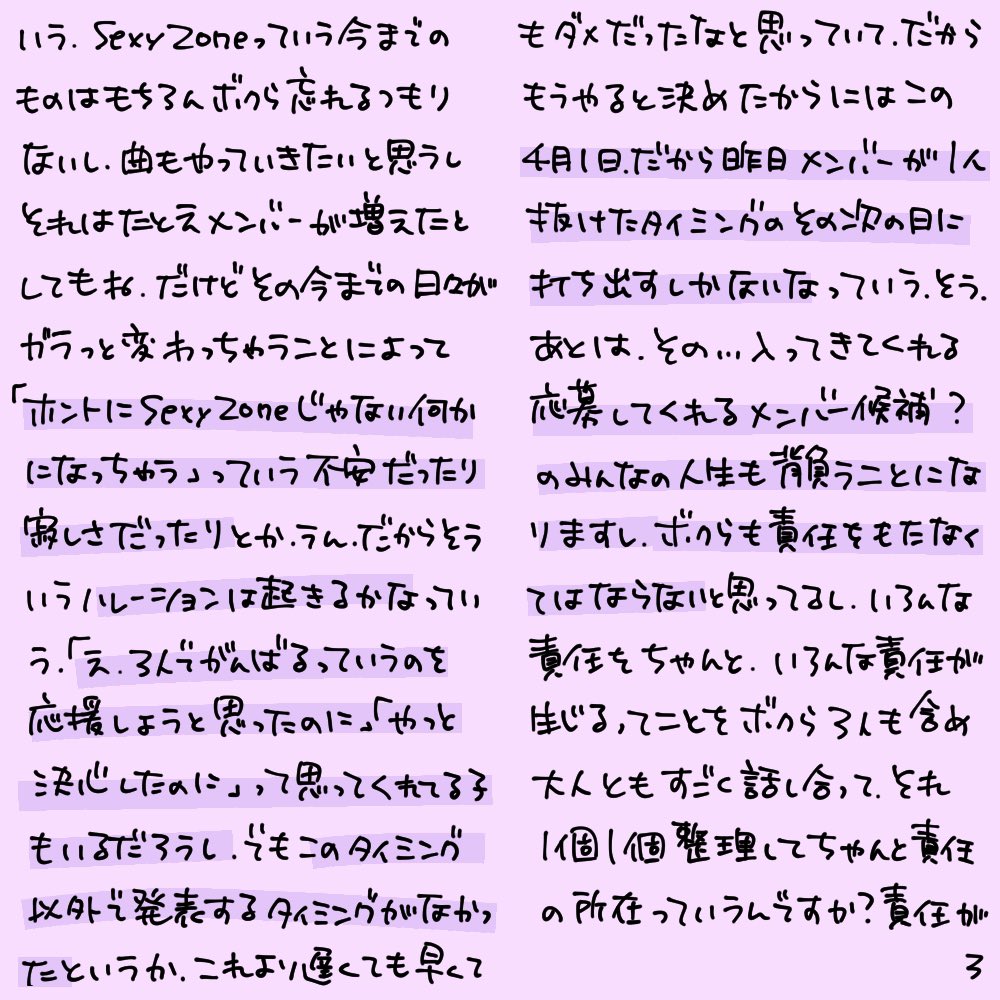 いう. Sexy Zoneっていう今までの
ものはもちろんボクら忘れるつもり
ないし. 曲もやっていきたいと思うし
それはたとえメンバーが増えたと
してもね. だけどその今までの日々が
ガラっと変わっちゃうことによって
「ホントにSexy Zoneじゃない何か
になっちゃう」っていう不安だったり
寂しさだったりとか. うん. だからそう
いうハレーションは起きるかなってい
う.「え. 3人でがんばるっていうのを
応援しようと思ったのに」「やっと
決心したのに」って思ってくれてる子
もいるだろうし. でもこのタイミング
以外で発表するタイミングがなかっ
たというか. これより遅くても早くて
もダメだったなと思っていて. だから
もうやると決めたからにはこの
4月1日. だから昨日メンバーが1人
抜けたタイミングのその次の日に
打ち出すしかないなっていう. そう.
あとは. その...入ってきてくれる
応募してくれるメンバー候補?
のみんなの人生も背負うことにな
りますし. ボクらも責任をもたなく
てはならないと思ってるし. いろんな
責任をちゃんと. いろんな責任が
生じるってことをボクら3人も含め
大人ともすごく話し合って. それ
1個1個整理してちゃんと責任
の所在っていうんですか?責任が
3